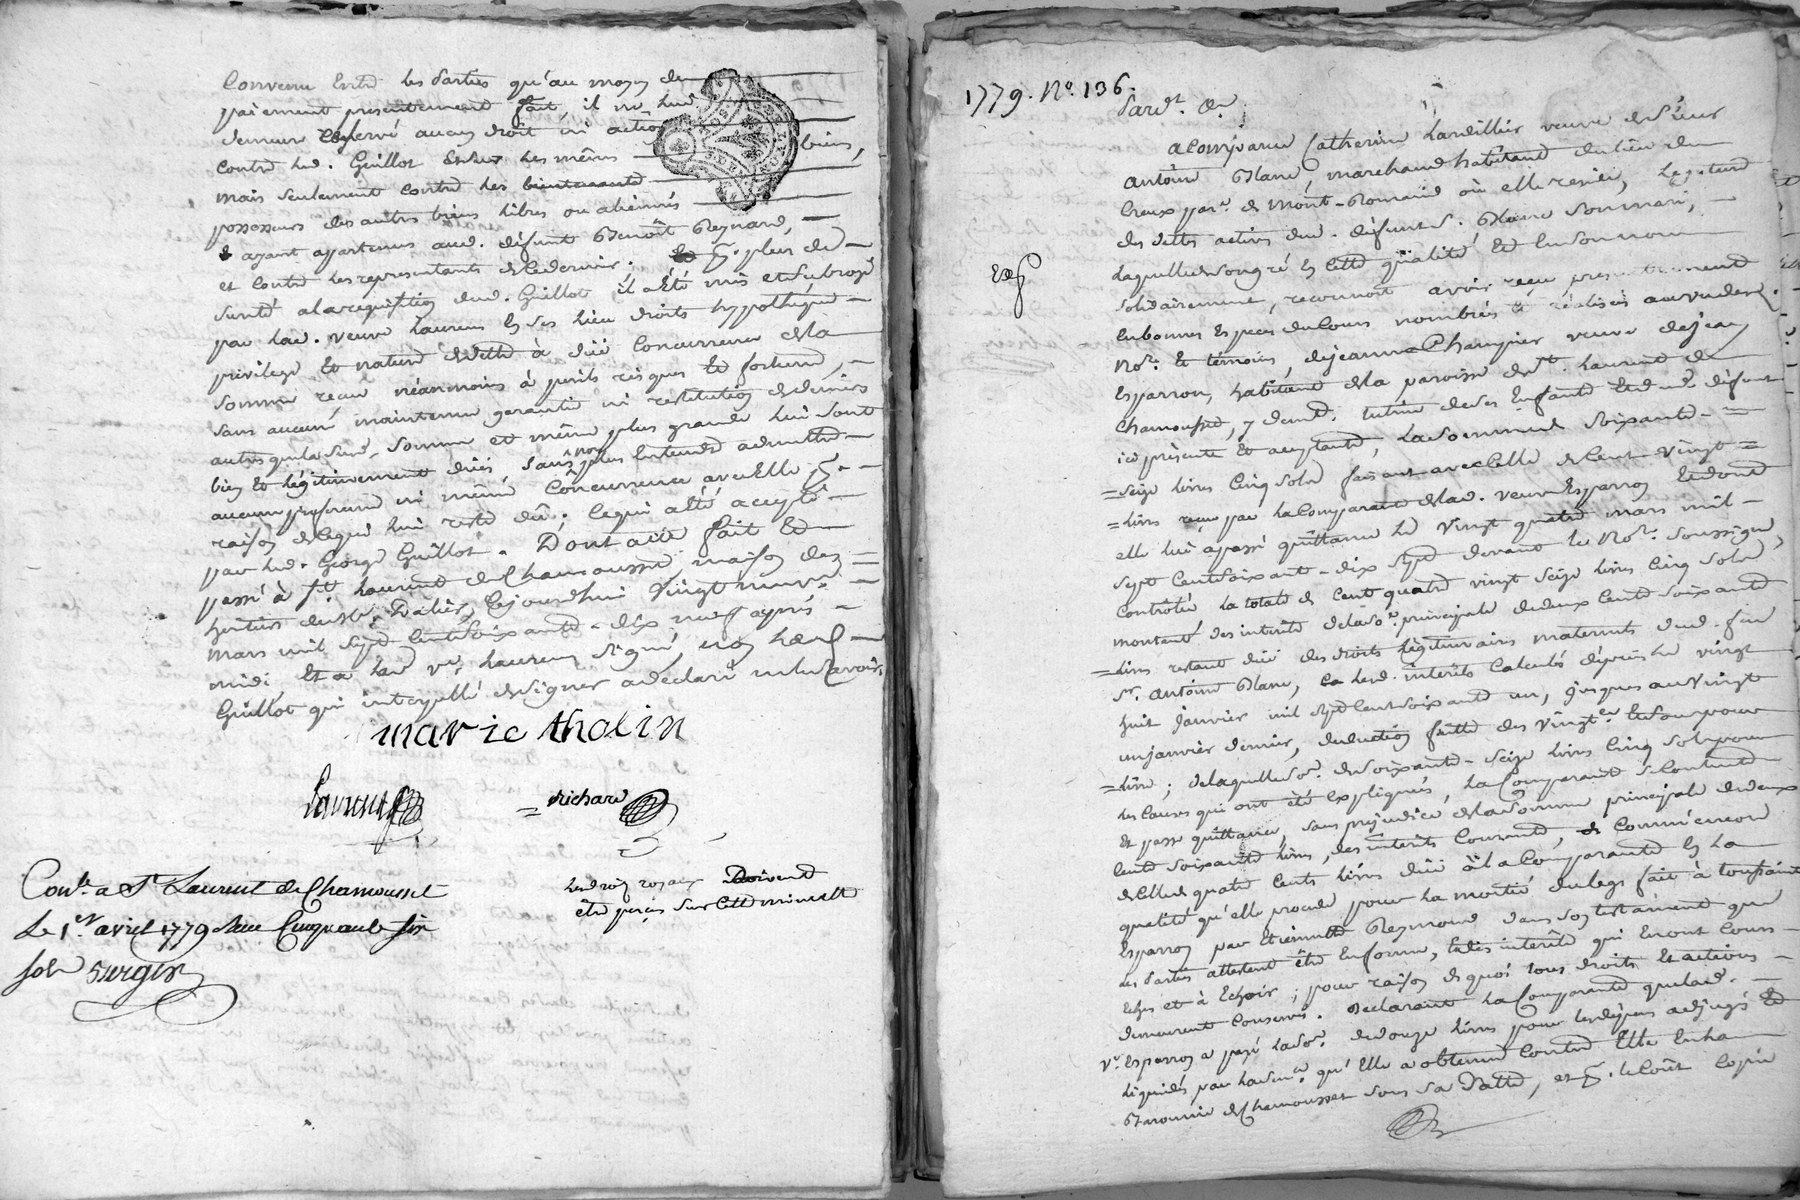 Convenu Entre les parties qu'au moyen de
paiement presentement fait, il ne lui
demeure reservé aucun droit ni action
contre led. Guillot Endus les mêmes biens,
mais seulement contre les bientenants
possesseurs des autres biens libres ou alienés
ayant appartenus aud. défunt Benoît Reynard,
et contre les representants de ce dernier. plus de
sureté alarequisition dud. Guillot, il a été mis et subrogé
par lad. veuve Laurens En ses lieu droits hyppothéque
privilege Et nature de dette à düe concurrence de la
somme recue néanmoins à perils risques Et fortune,
sans aucune maintenue garantie ni restitution de deniers
autres que lad. somme et même plus grande lui sont
bien Et légitimement düe sans non plus Entendre admettre
aucune preference ni même concurrence avec Elle
raison de ce qui lui reste dû; ce qui a été accepté
par led. George Guillot. Dont acte fait Et
passé à St. Laurent de Chamousset maison des
heritiers du Sr. Dalier, Cejourdhui vingt neuf
mars mil sept Cent Soixante-dix neuf après
midi Et a lad. ve. Laurens signé, non led.
Guillot qui interpellé de signer a déclaré ne le savoir.
marie tholin
Laurens
richard
les droits royaux Doivent
être perçus sur cette minutte
Conle. a St Laurent de Chamousset
Le 1er. avril 1779 Reçu Cinquante six
sols Surgis
1779. No. 136.
Pardt. &c.
a Comparu Catherine Lardillier veuve de Sieur
antoine Blanc, marchand habitant du lieu de
Creux parse. de Mont-Romain où elle reside, Legataire
des dettes actives dud. défunt S. Blanc son mari,
laquelle de son gré En cette qualité Et En son nom
solidairement, reconnoit avoir recu presentement
En bonnes Especes du Cours nombrés Et réalisés au vu de
Nore. Et témoins, de jeanne Champier veuve de jean
Esparron, habitante de la paroisse de St. Laurent de
Chamousset, y demt. tutrice de ses Enfants Et dud. défunt
ici présente Et acceptante, la somme de soixante-
seize livres Cinq sols faisant avec celle de Cent vingt
livres recue par la Comparante de lad. veuve Esparron Et dont
elle lui a passé quittance le vingt quatre mars mil
sept Cent soixante-dix sept devant le Nore. soussigné,
Controlée la totale de Cent quatre vingt seize livres Cinq sols
montant des interets de la so. principale de deux Cents soixante
livres restant düe des droits légitimaires maternels dud. feu
Sr. antoine Blanc, les interêts calculés depuis le vingt
huit janvier mil sept Cent soixante un, jusques au vingt
un janvier dernier, deduction faitte des vingte. Et sous pour
livre; de laquelle so. de soixante-seize livres Cinq sols pour
les causes qui ont été Expliquées, la Comparante se Contente
Et passe quittance, sans prejudice de la somme principale de deux
Cents soixante livres, des interêts Courants, Et commencé
de Celle de quatre Cents livres düe à la Comparante En la
qualité qu'elle procede pour la moitié du legs fait à toussaint
Esparron par Etiennette Reymond dans son testament que
les parties attestent être En forme, Et des interêts qui En ont Cours
Echus et à Echoir; pour raison de quoi tous droits Et actions
demeurent Conservés. Declarant la Comparante que lad.
ve. Esparron a payé la so. de douze livres pour les dépens adjugés Et
liquidés par la Sence. qu'Elle a obtenue contre Elle En la
Baronnie de Chamousset sous sa Datte, et le Coût Copie